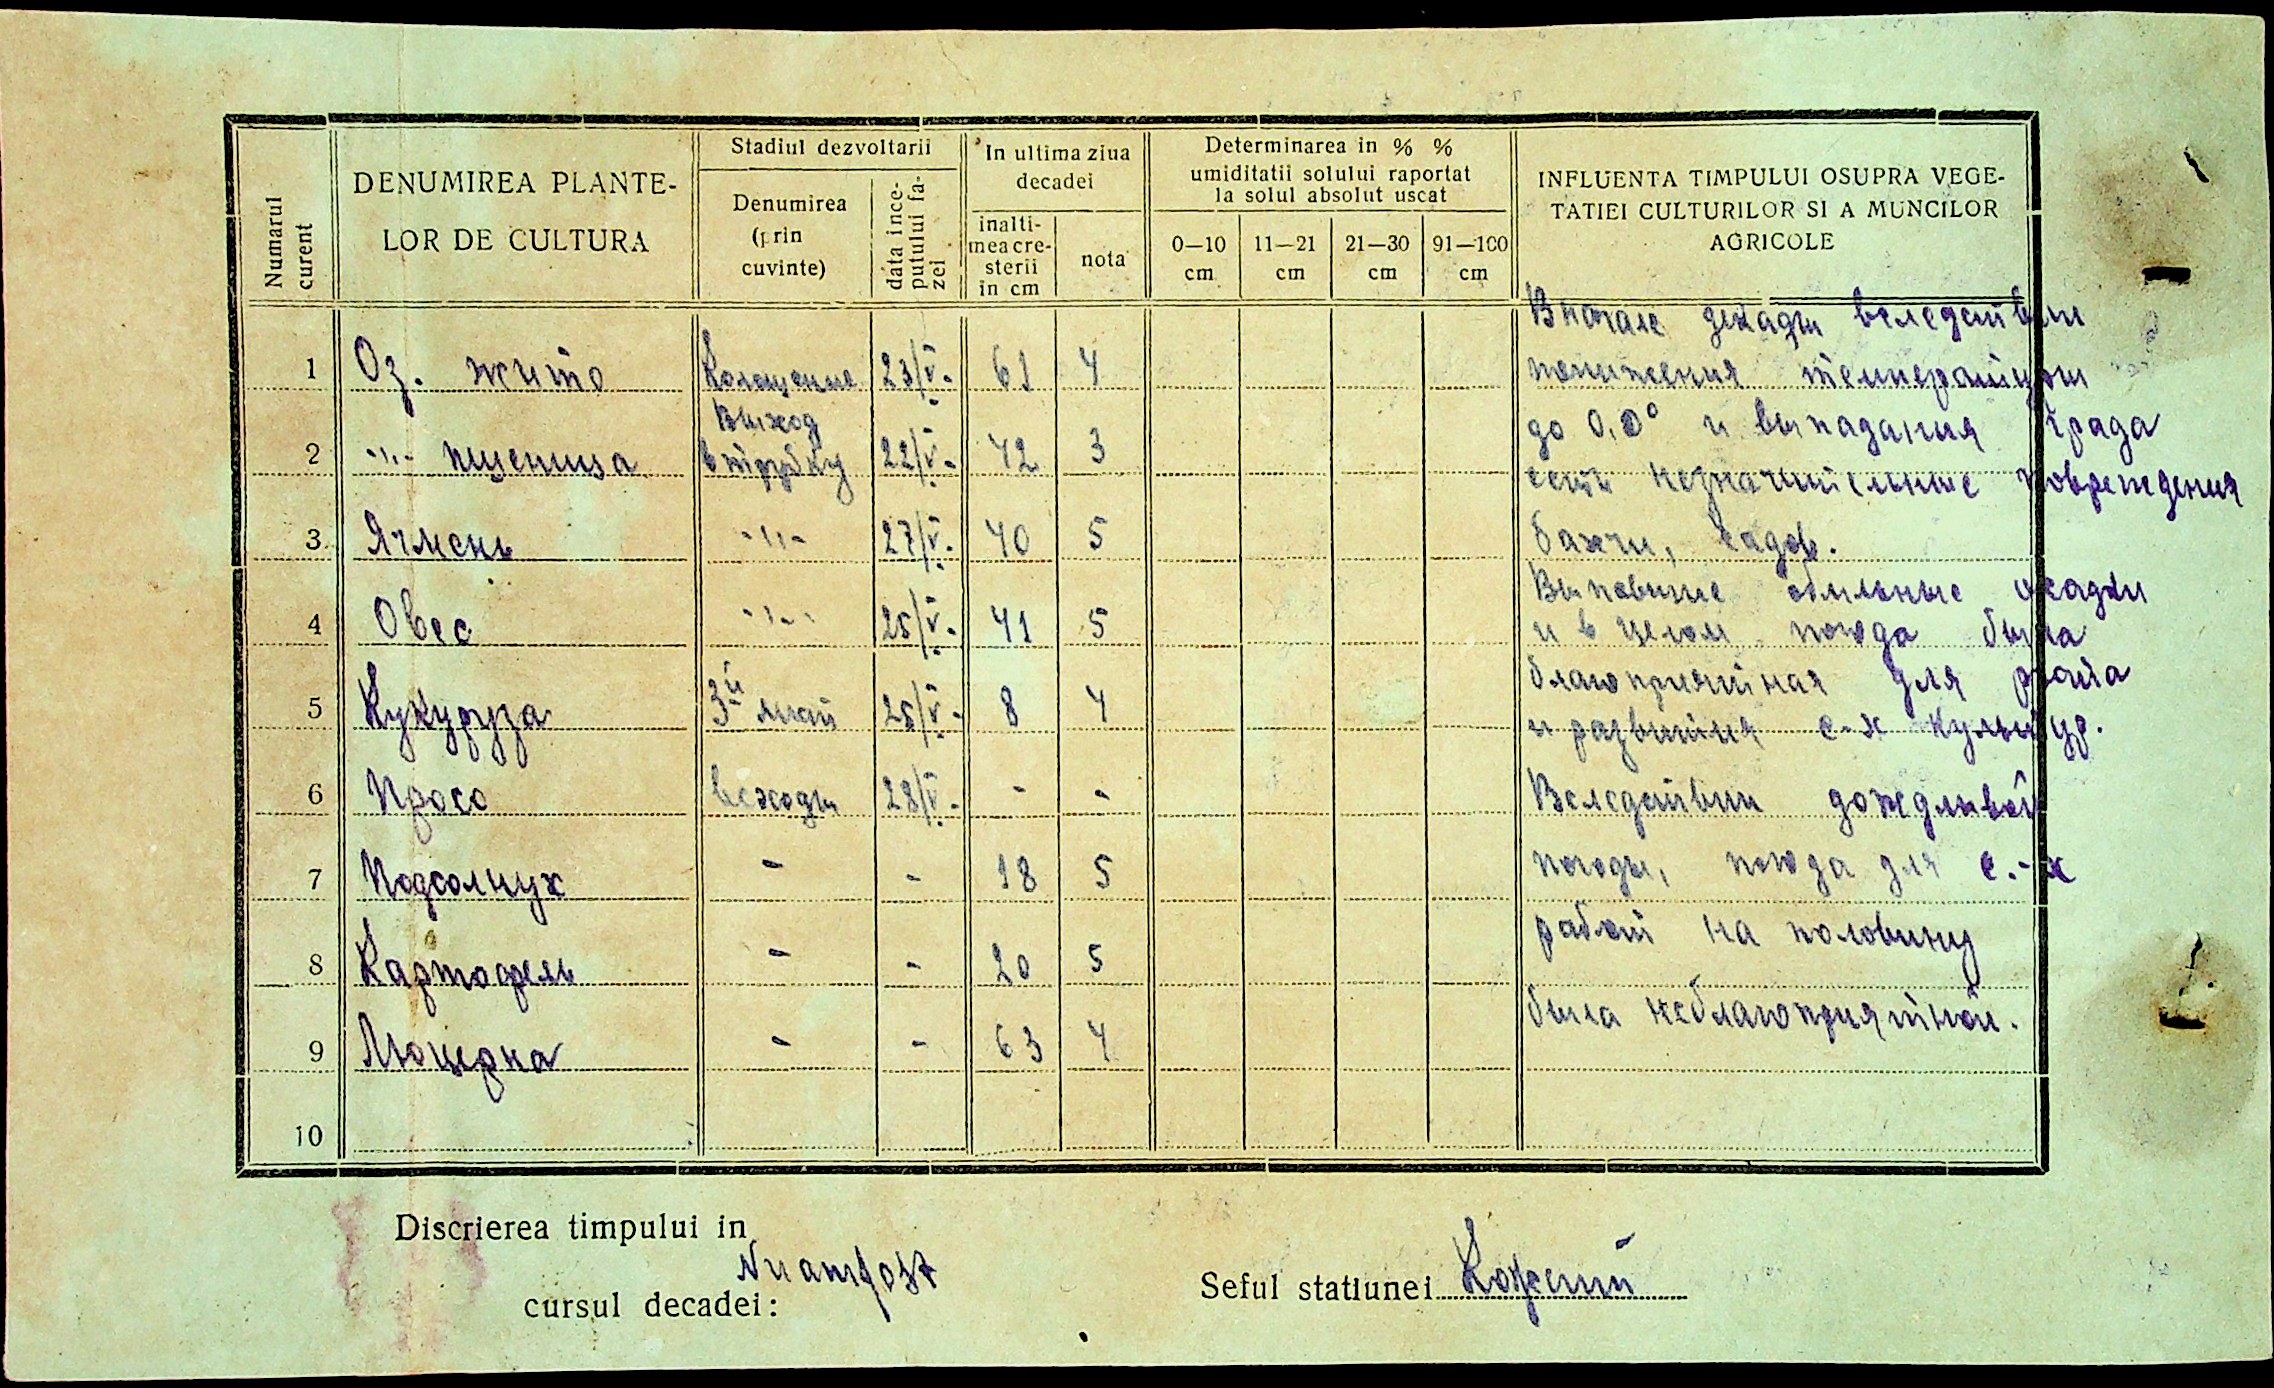 Numarul curent
DENUMIREA PLANTE-
LOR DE CULTURA
Stadiul dezvoltarii
Denumirea
(prin
cuvinte)
data ince-
putului fa-
zei
In ultima ziua
decadei
inalti-
mea cre-
sterii
in cm
nota
Determinarea in % %
umiditatii solului raportat
la solul absolut uscat
0—10 cm
11—21 cm
21—30 cm
91—100 cm
INFLUENTA TIMPULUI OSUPRA VEGE-
TATIEI CULTURILOR SI A MUNCILOR
AGRICOLE
1 Оз. жито Колошение 23/V. 61 4
2 -"- пшеница Выход в трубку 22/V. 42 3
3 Ячмень -"- 27/V. 40 5
4 Овес -"- 25/V. 41 5
5 Кукуруза 3й лист 25/V. 8 4
6 Просо всходы 28/V. - -
7 Подсолнух - - 18 5
8 Картофель - - 20 5
9 Люцерна - - 63 4
10
Вначале декады вследствии
понижения температуры
до 0,0° и выпадания града
есть незначительные повреждения
бахчи, садов.
Выпавшие обильные осадки
и в целом погода была
благоприятная для роста
и развития с-х культур.
Вследствии дождливой
погоды, погода для с.-х
работ на половину
была неблагоприятной.
Discrierea timpului in
cursul decadei:
Seful statiunei